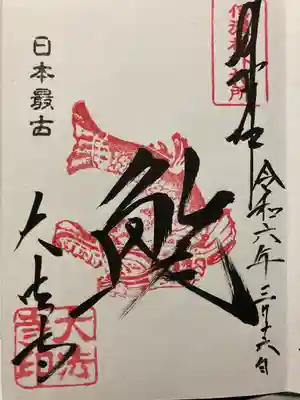 令和六年三月十六日
鯱
日本最古
大法寺
大法寺印